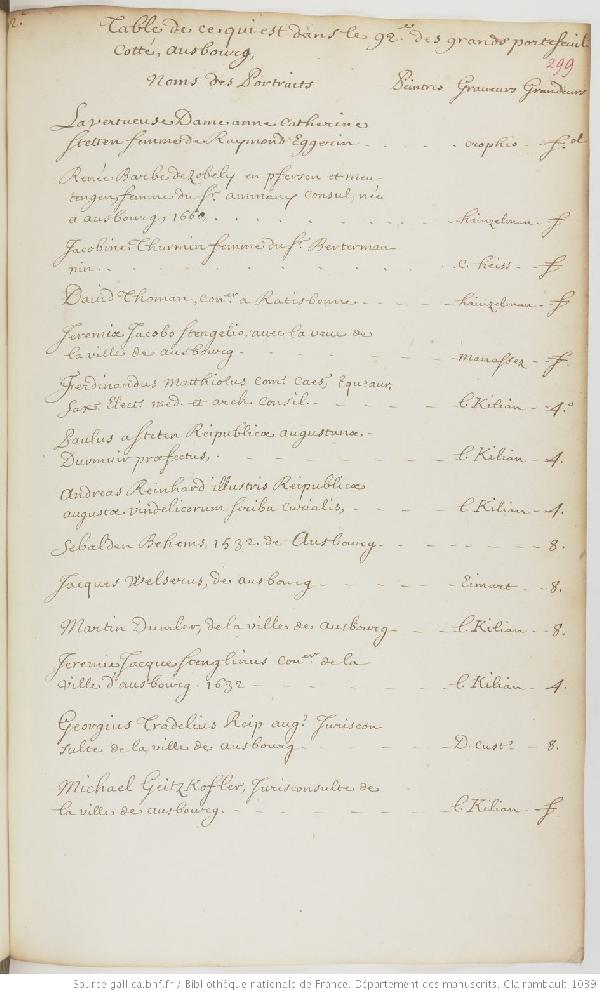 2.
Table de ce qui est dans le 92.e des grands portefeuil.
Cotté, Ausbourg,
299
Noms des Portraits Peintres Graveurs Grandeurs
La vertueuse Dame anne Catherine
stetten femme de Raymond Eggerin crophio f.ol
Renée Barbe de Zobely en pfersen et meu-
tengen, femme du Sr. ammany Consul, née
a ausbourg, 1660 hainzelman f
Jacobine Thurmin femme du Sr. Berterman-
nin C. heiss f
David Thoman, Conser a Ratisbonne hainzelman f
Jeremiæ Jacobo Stengelio, avec la veue de
la ville de ausbourg manassez f
Ferdinandus Matthiolus Com. Caes, Equ aur,
Sax. Elect. med. et arch. Consil. l. Kilian 4.o
Paulus a stetten Reipublicæ augustanæ
Duumuir præfectus, l. Kilian 4.
Andreas Reinhard illustris Reipublicæ
augustæ vindelicorum scriba curialis, l. Kilian 4.
Sebalden Behems, 1532. de Ausbourg 8.
Jacques Welserus, de ausbourg Eimart 8.
Martin Dumler, de la ville de ausbourg l. Kilian 8.
Jeremie Jacque Stenglinus Conser de la
ville d'ausbourg. 1632 l. Kilian 4.
Georgius Tradelius Reip aug. Juriscon-
sulte de la ville de ausbourg D. Cust. 8.
Michael Geitzkofler, Jurisconsulte de
la ville de ausbourg. l. Kilian f
Source gallica.bnf.fr / Bibliothèque nationale de France. Département des manuscrits. Clairambault 1039